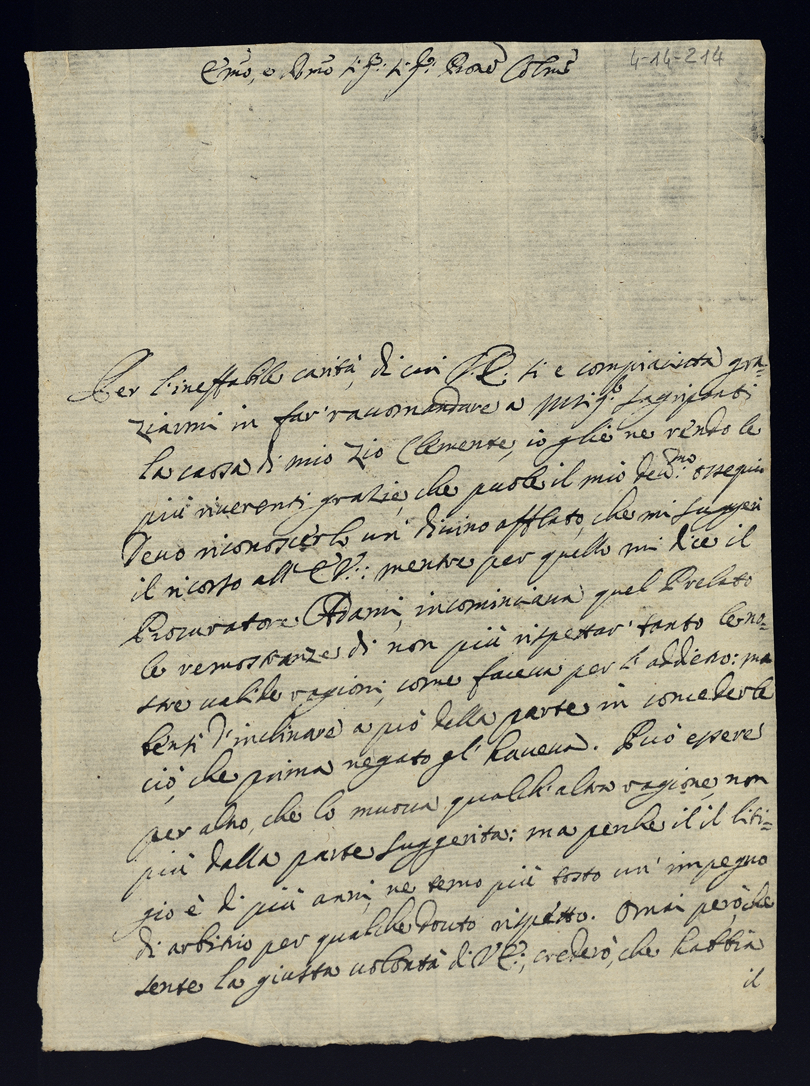 4-14-214
Emo, e Rmo Sig: Sig: Prone Colmo
Per l'ineffabile carità, di cui V.E. si è compiaciuta gra-
ziarmi in far' raccomandare a Monsig.r Sagripanti
la causa di mio Zio Clemente, io glie ne rendo le
più riverenti grazie, che puole il mio dev:mo ossequio
Devo riconoscerlo un' divino afflato, che mi suggerì
il ricorso all' E.V.: mentre per quello mi dice il
Procuratore Adami, incominciava quel Prelato
le remostranze di non più rispettar' tanto le no-
stre valide ragioni, come faceva per l' addietro: ma
bensì d'inclinare a prò della parte in concederle
ciò, che prima negato gl' haveva. Può essere
per altro, che lo muova qualch' altra ragione, non
più dalla parte suggerita: ma perche il il liti-
gio è di più anni, ne temo più tosto un' impegno
di arbitrio per qualche dovuto rispetto. Omai però, che
sente la giusta volontà di V.E:, crederò, che habbia
il